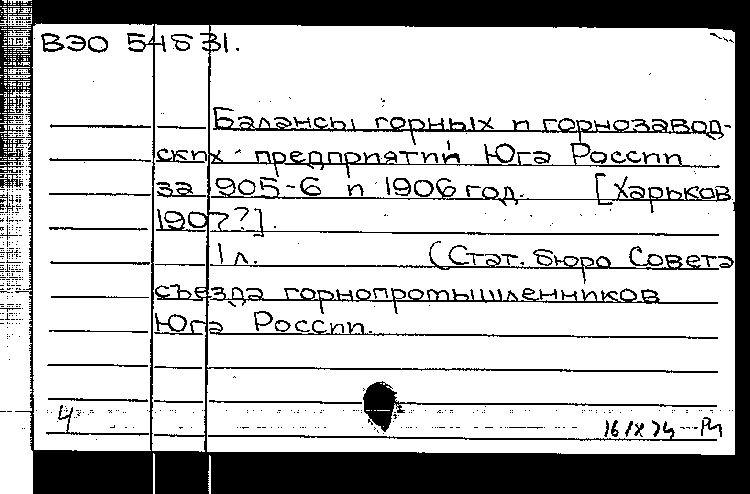 ВЭО 54831.
Балансы горных и горнозавод-
ских предприятий Юга России
за 905-6 и 1906 год. [Харьков,
1907?].
1 л. (Стат. бюро Совета
съезда горнопромышленников
Юга России.
4
16 IX 74